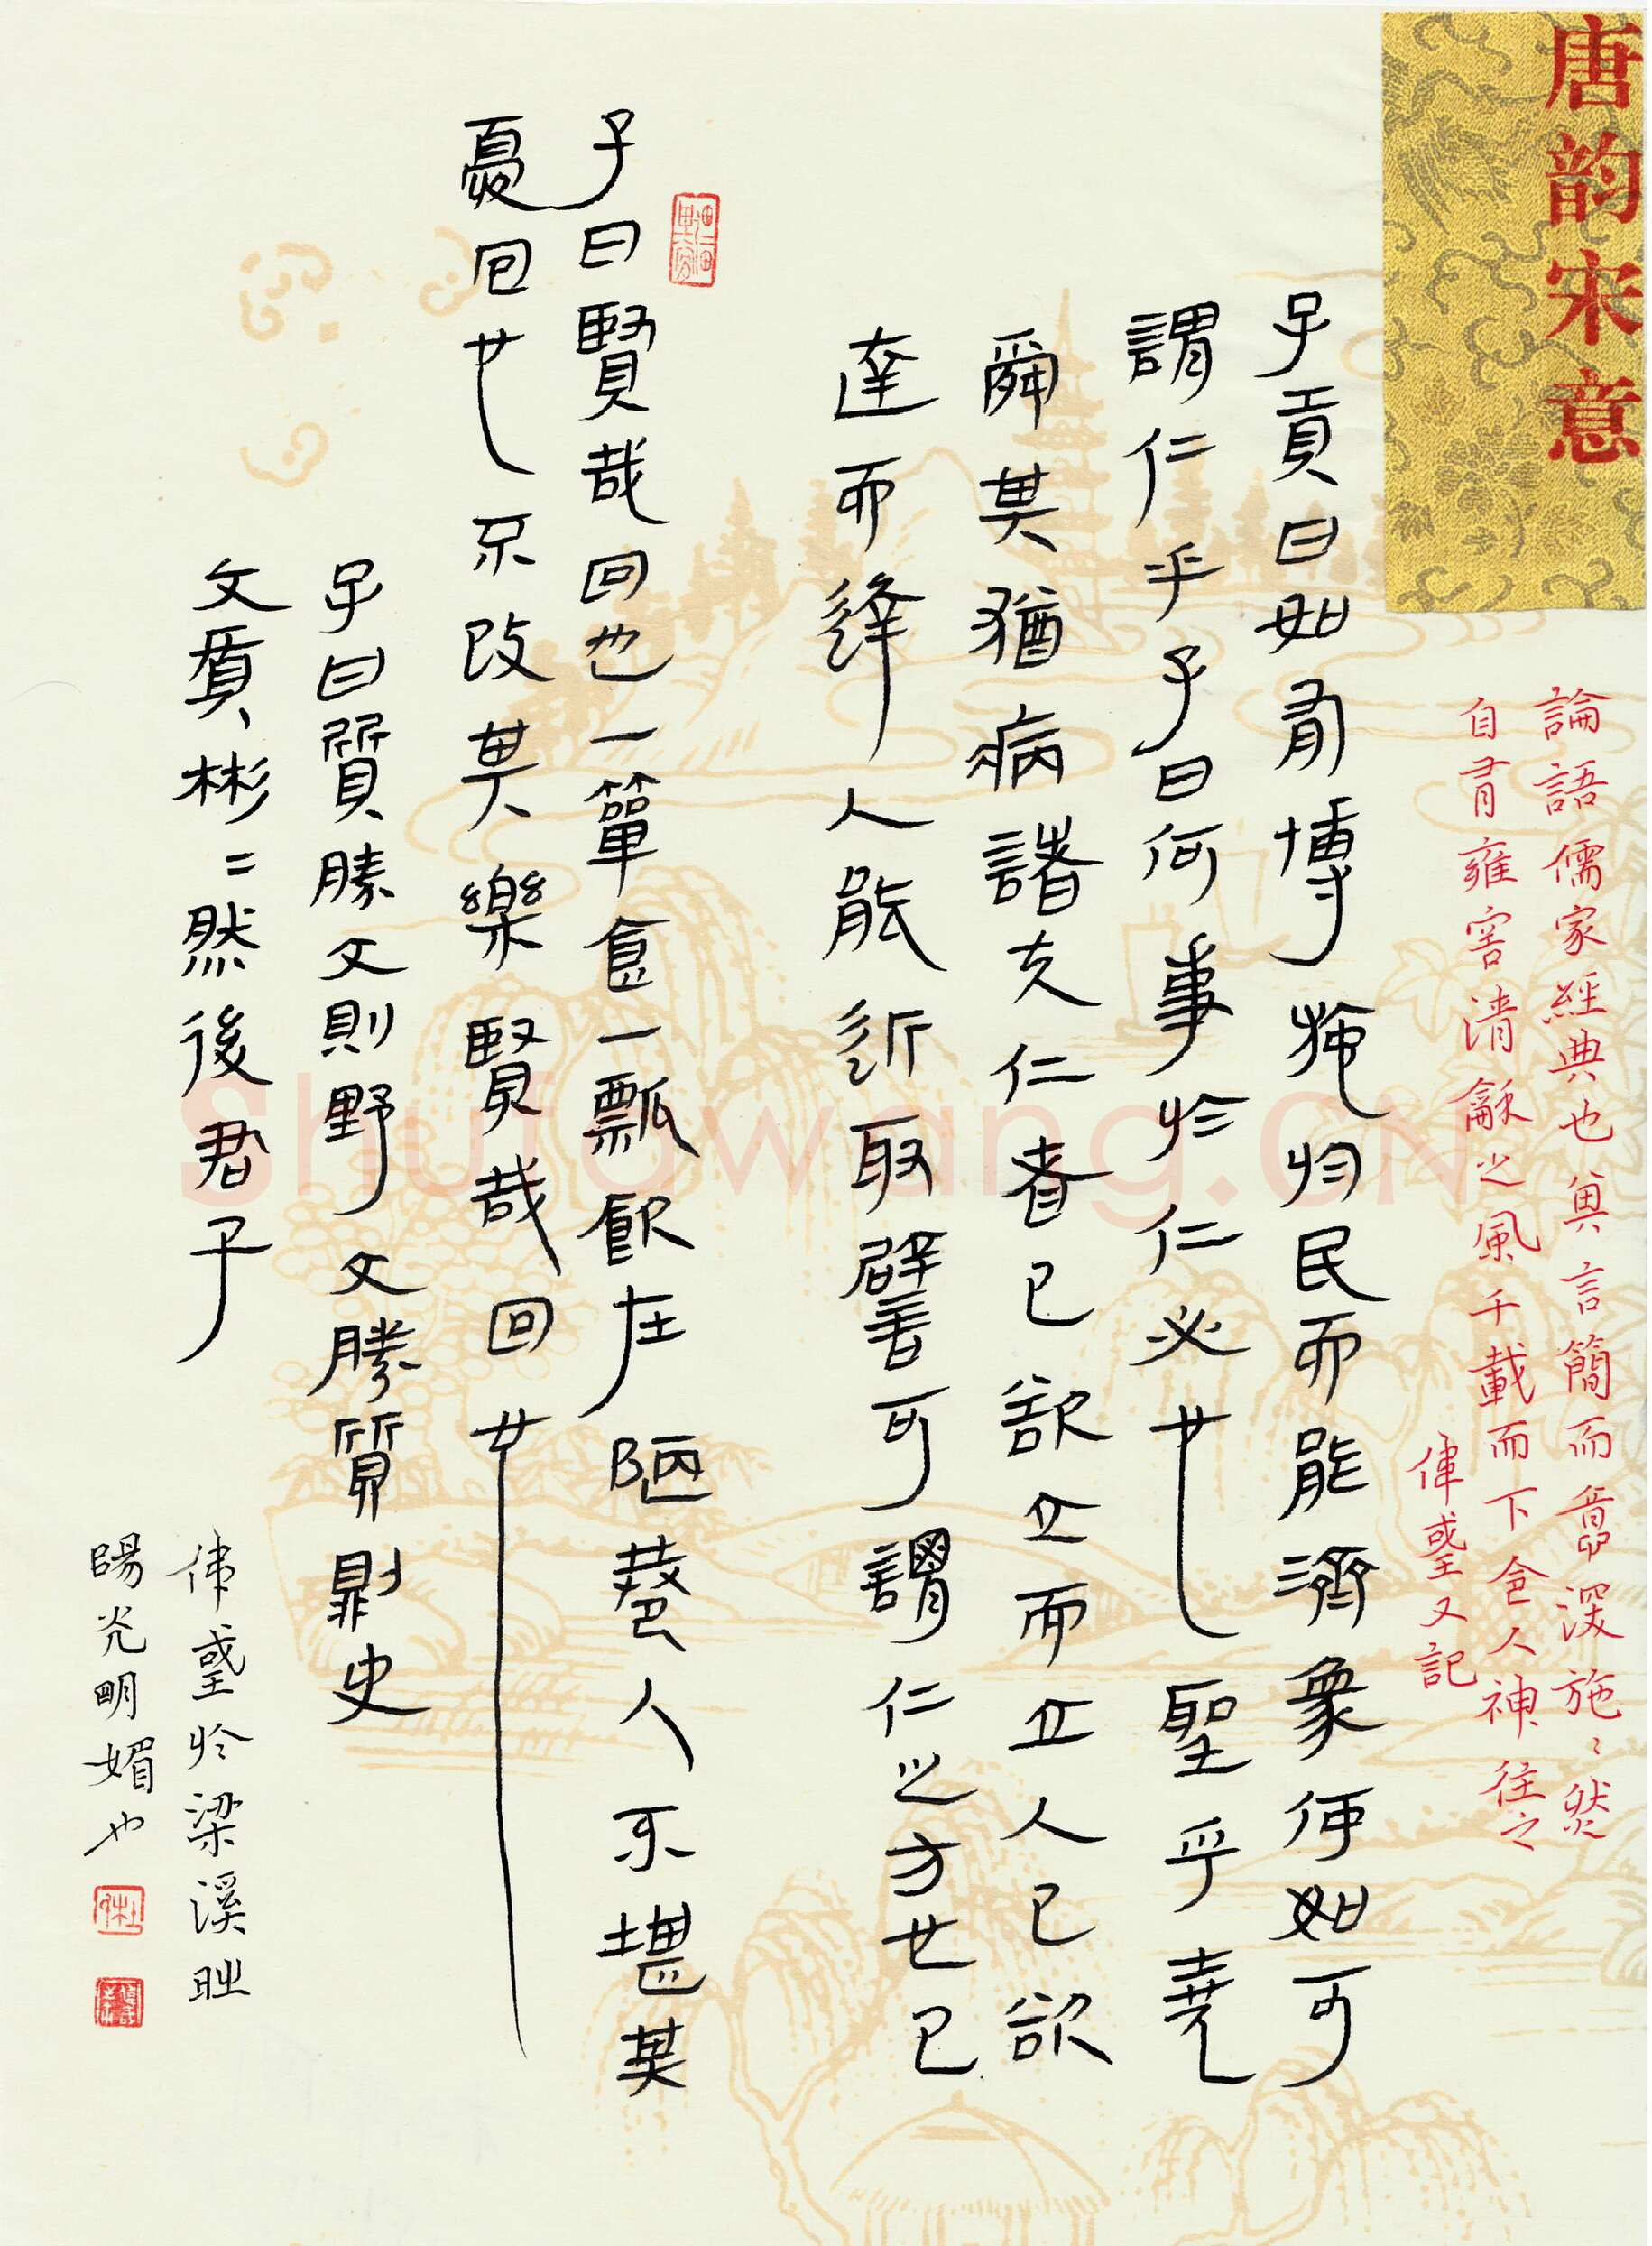 唐韵宋意
論語儒家經典也其言簡而意深施〻然
自有雍容清龢之風千載而下令人神往之
偉又記
子貢曰如有博施於民而能濟衆何如可
謂仁乎子曰何事於仁必也聖乎堯
舜其猶病諸夫仁者己欲立而立人己欲
達而達人能近取譬可謂仁之方也已
子曰賢哉回也一簞食一瓢飲在陋巷人不堪其
憂回也不改其樂賢哉回也
子曰質勝文則野文勝質則史
文質彬〻然後君子
偉於梁溪時
陽光明媚也
Shufawang.CN